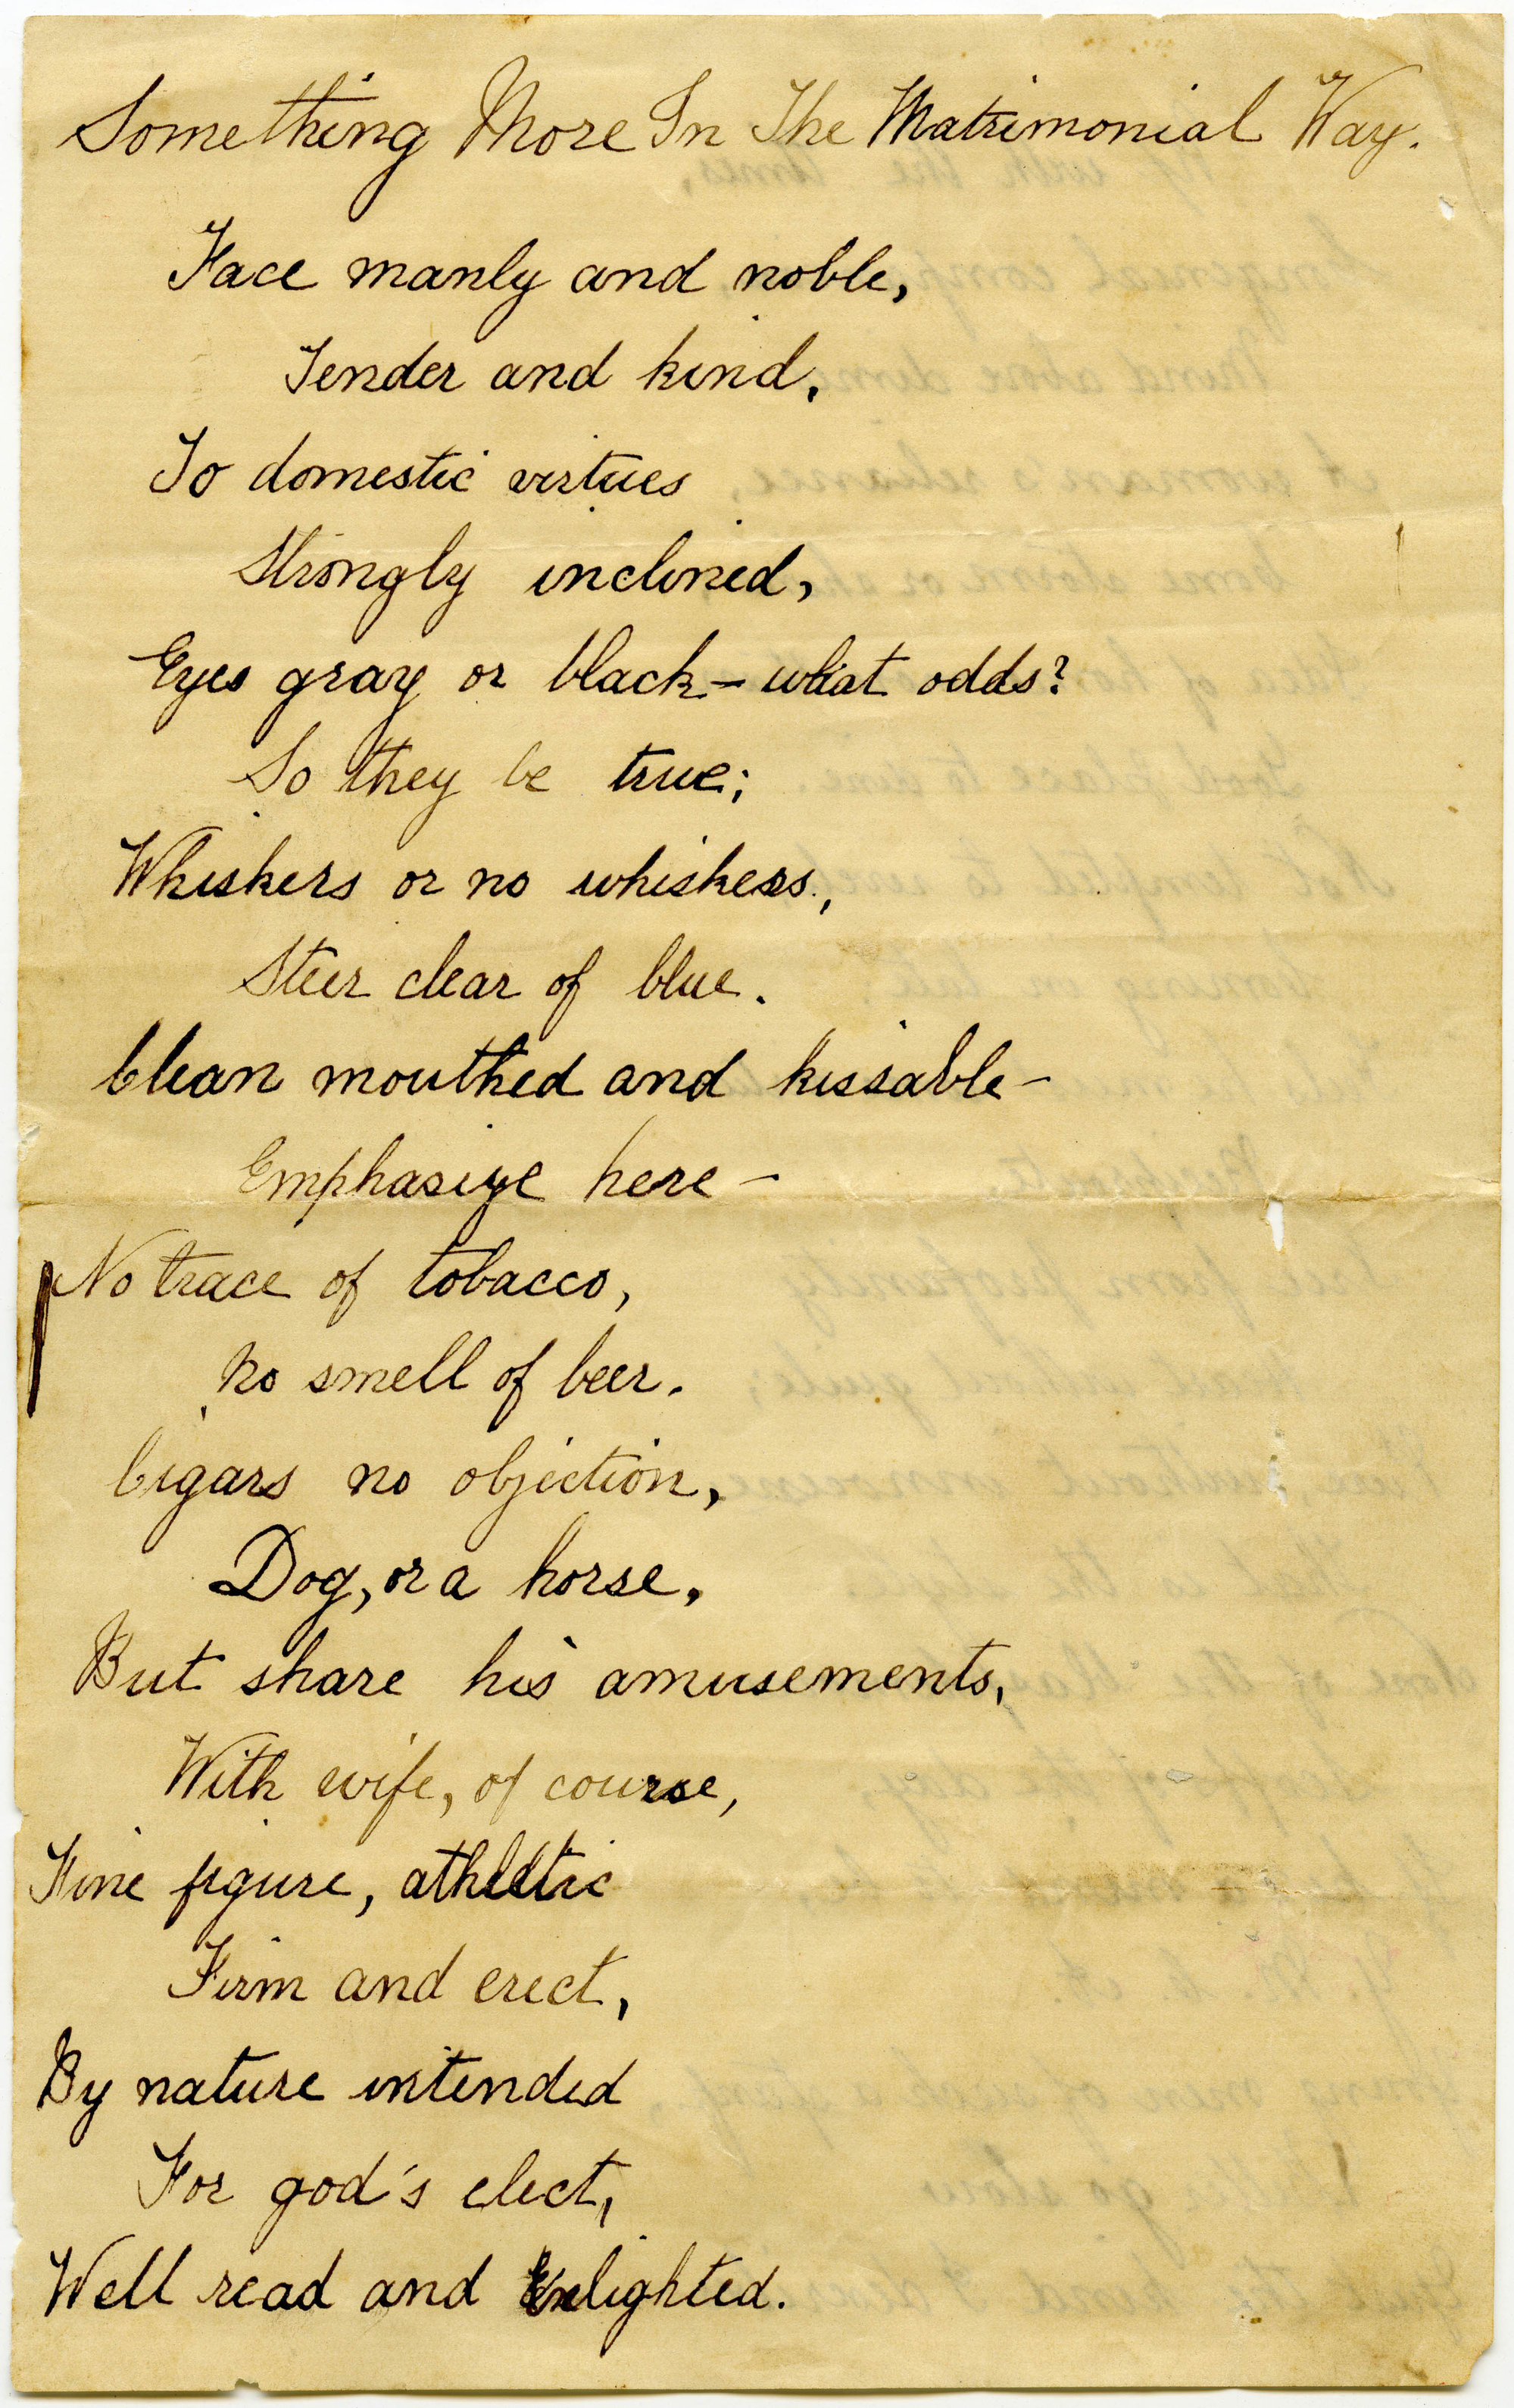 Something More In The Matrimonial Way.
Face manly and noble,
Tender and kind,
To domestic virtues
Strongly inclined,
Eyes gray or black – what odds?
So they be true;
Whiskers or no whiskers,
Steer clear of blue.
Clean mouthed and kissable –
Emphasize here –
No trace of tobacco,
No smell of beer.
Cigars no objection,
Dog, or a horse,
But share his amusements,
With wife, of course,
Fine figure, athletic
Firm and erect,
By nature intended
For god's elect,
Well read and Enlighted.